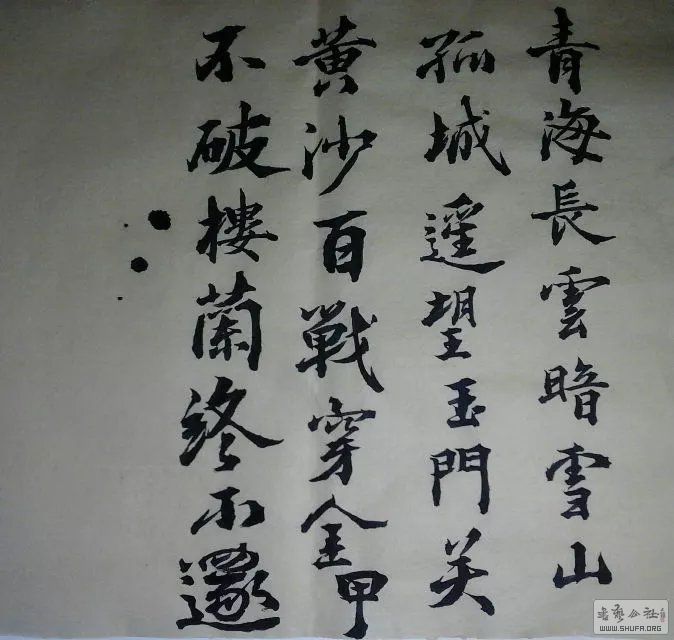 青海長雲暗雪山
孤城遥望玉門关
黄沙百戰穿金甲
不破樓蘭終不還
書藝公社
WWW.SHUFA.ORG